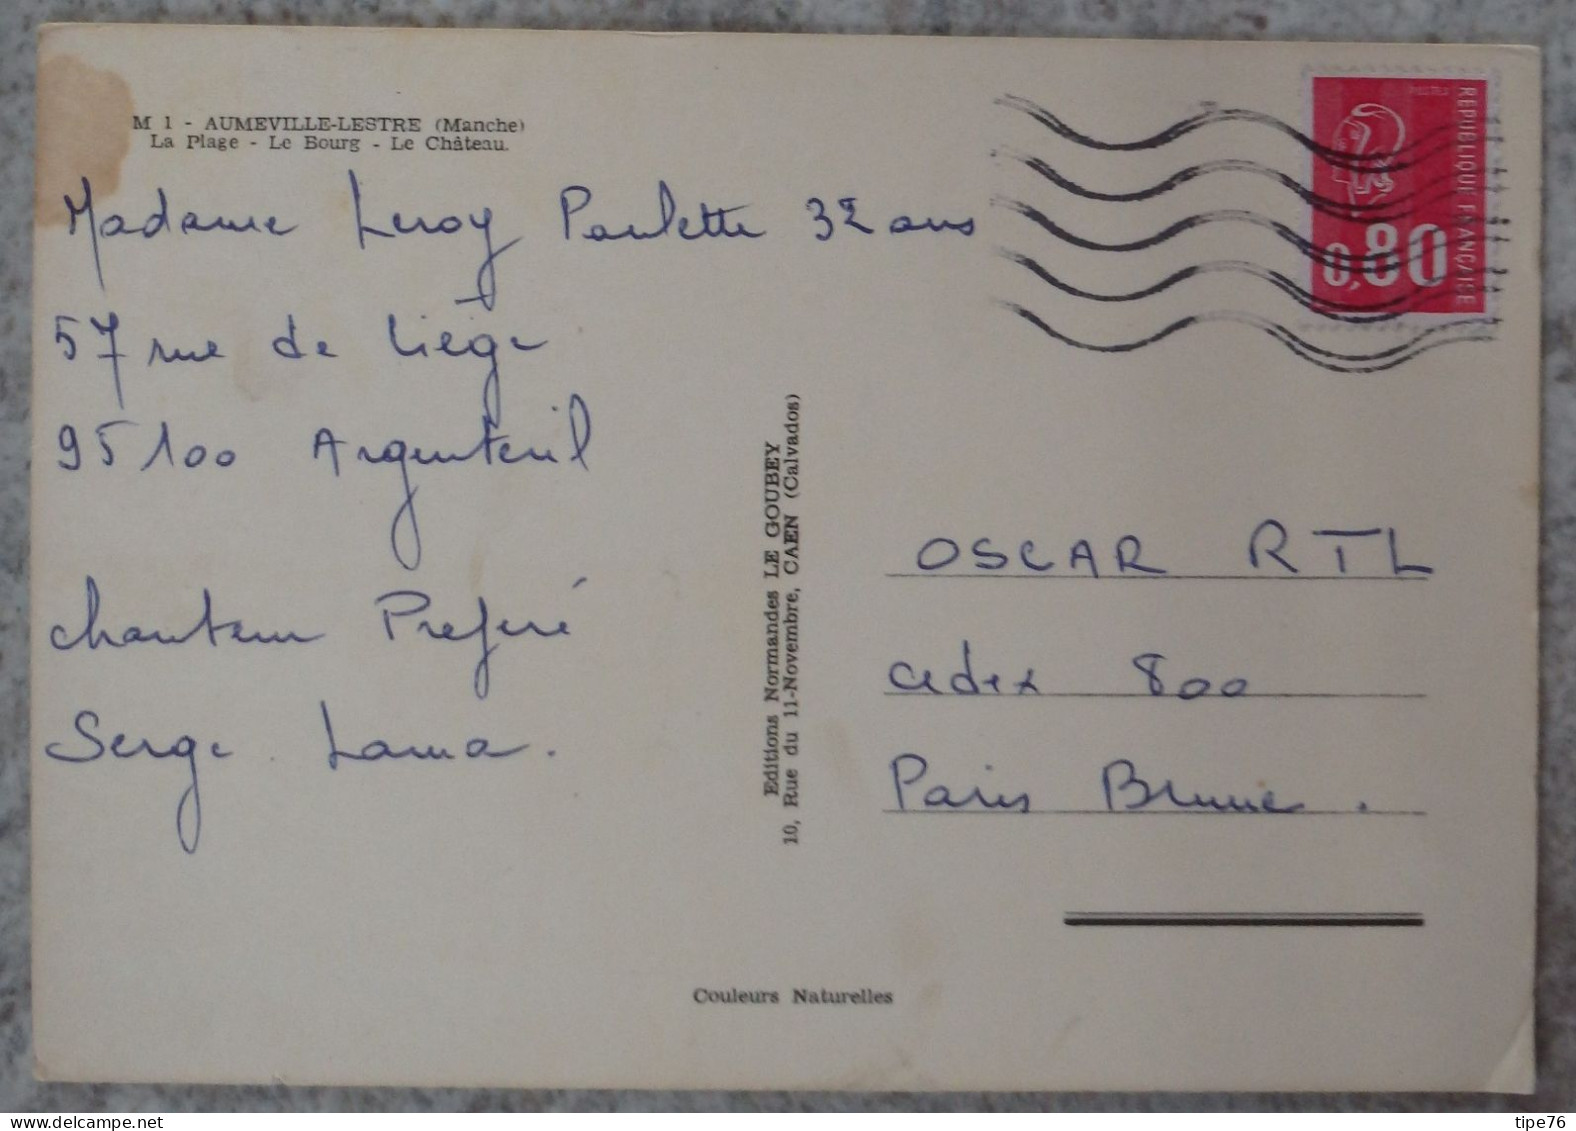 M 1 - AUMEVILLE-LESTRE (Manche)
La Plage - Le Bourg - Le Château.
Madame Leroy Paulette 32 ans
57 rue de Liège
95100 Argenteuil
chanteur Preferé
Serge Lama.
Editions Normandes LE GOUBEY
10, Rue du 11-Novembre, CAEN (Calvados)
POSTES
REPUBLIQUE FRANÇAISE
0,80
OSCAR RTL
cedex 800
Paris Brune.
Couleurs Naturelles
tipe76